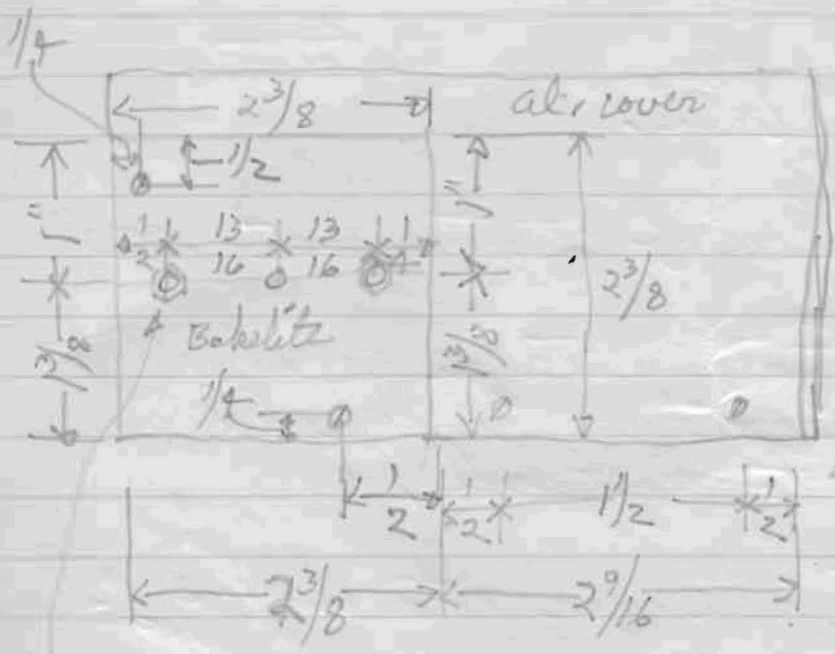 1/4
2 3/8
al. cover
1/2
1"
1"
1/2 13/16 13/16 1/4
2 3/8
Bakelite
1/4
1/2 1/2 1 1/2 1/2
2 3/8 2 9/16